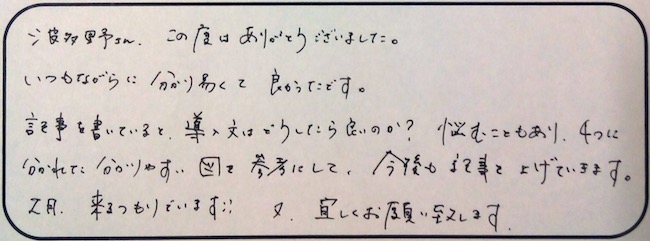 波多野さん、この度はありがとうございました。
いつもながらに分かり易くて良かったです。
記事を書いていると、導入文はどうしたら良いのか？悩むこともあり、4つに
分かれた分かりやすい図を参考にして、今後も記事を上げていきます。
又月、来るつもりでいます!! 又、宜しくお願い致します。